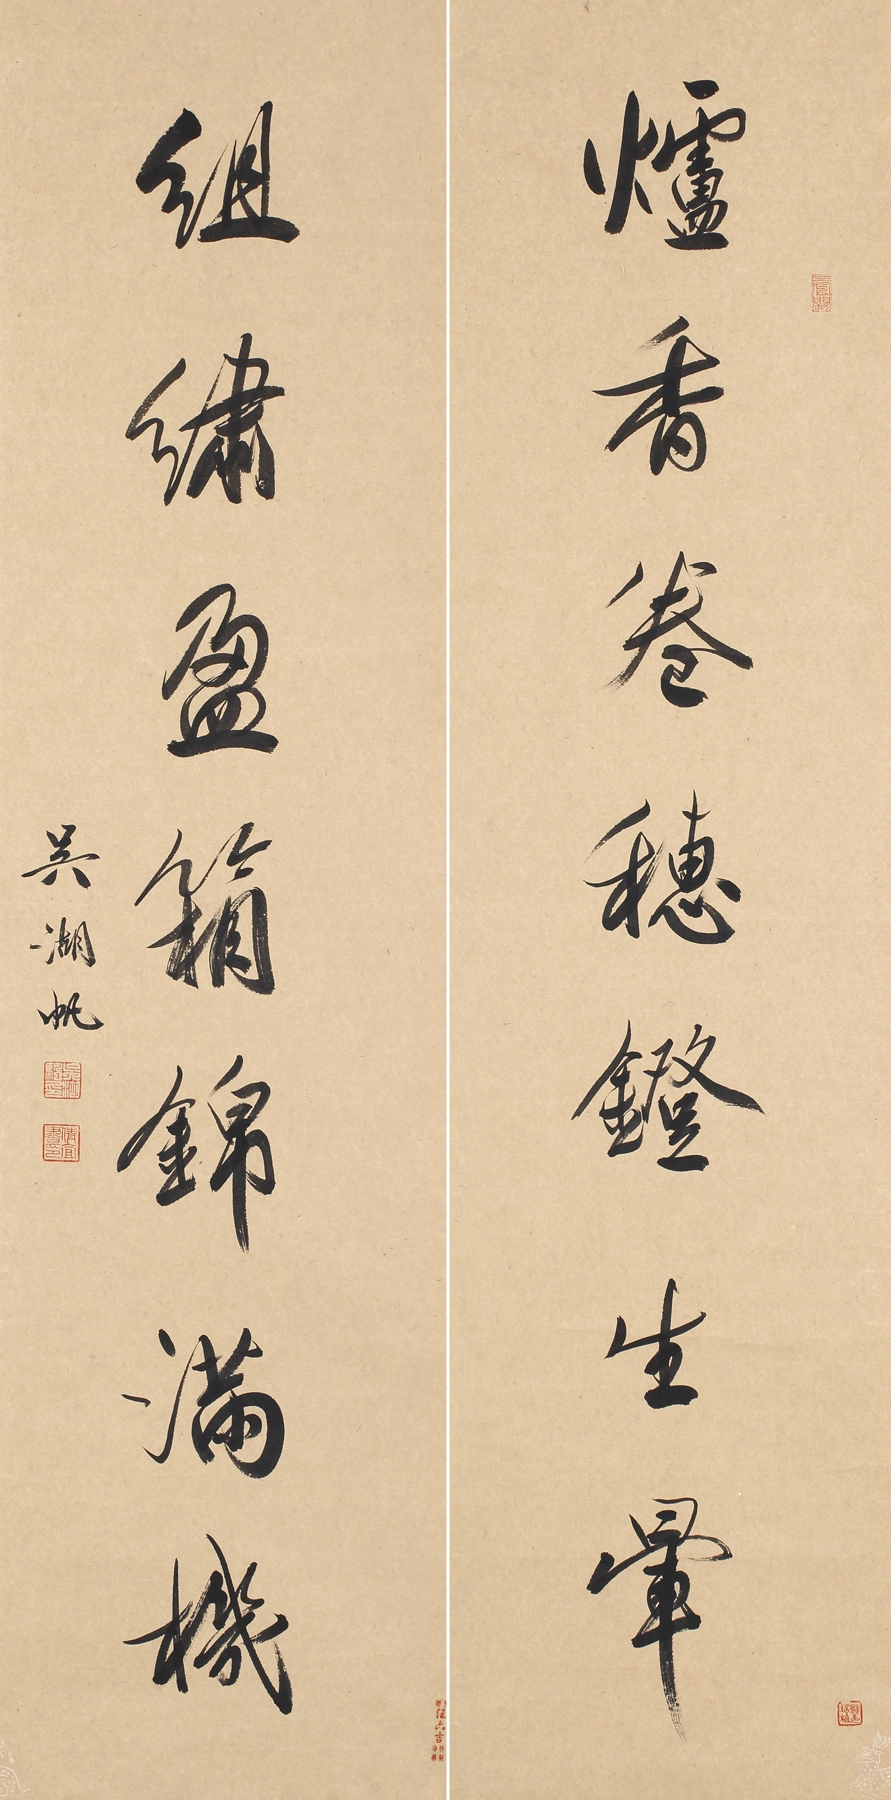 爐香卷穗鐙生暈
組繡盈箱錦滿機
吳湖帆